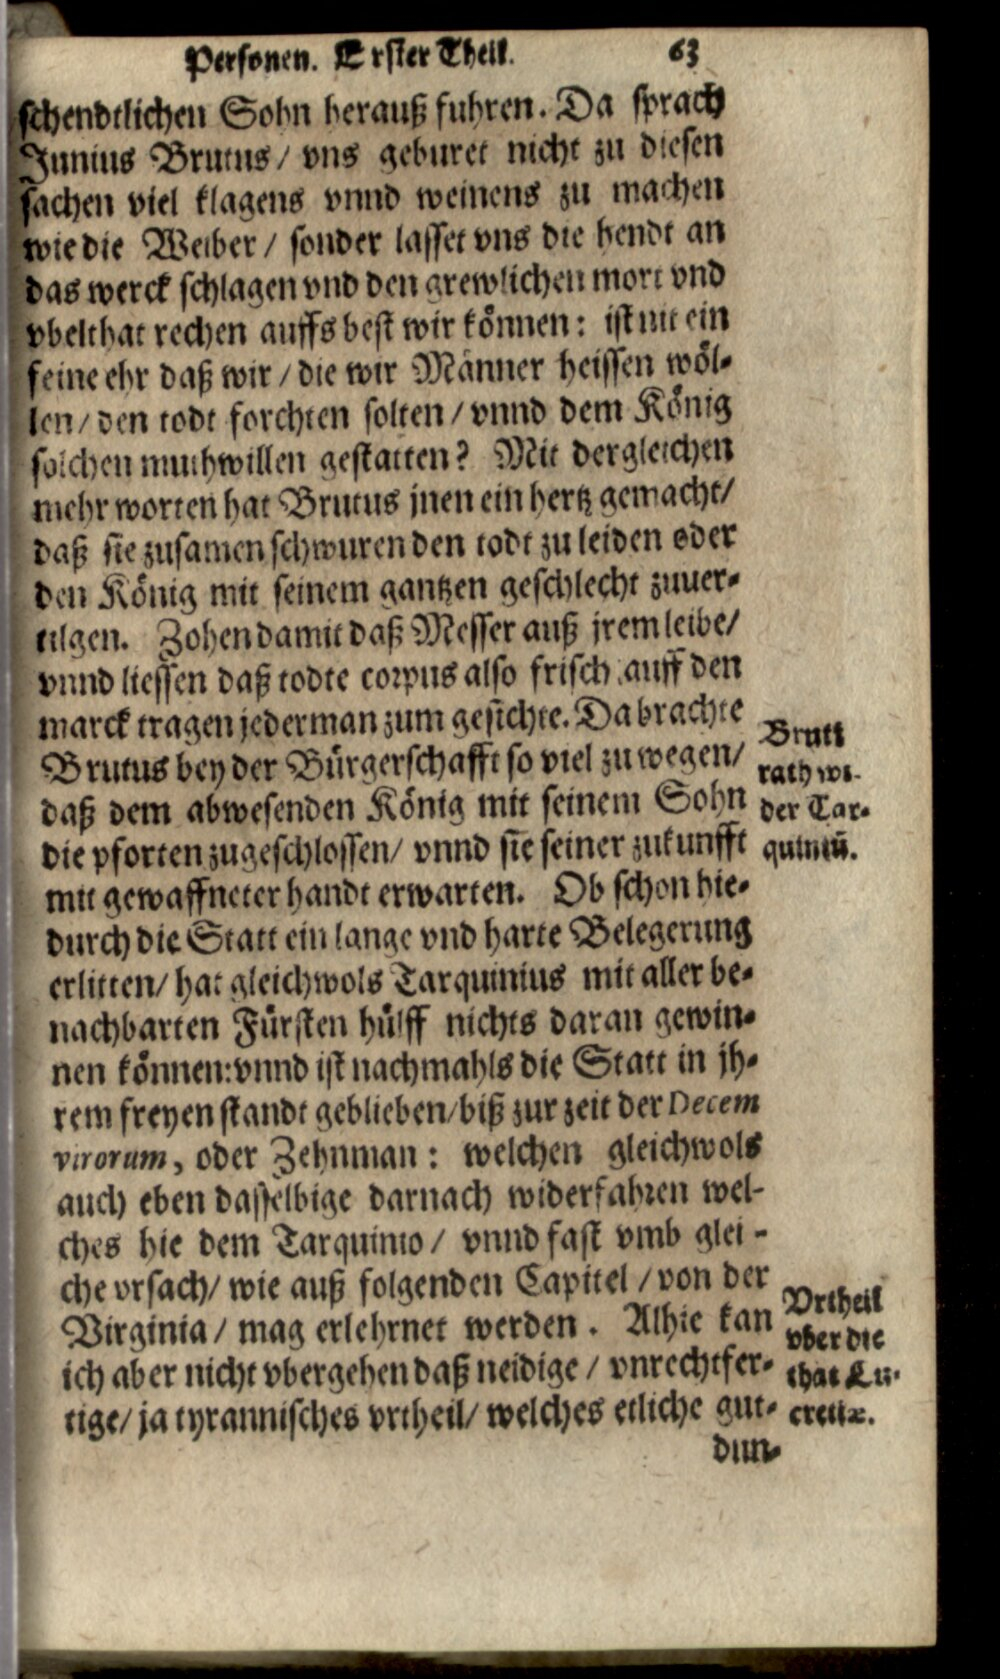 Personen. Erster Theil. 63
schendtlichen Sohn herauß fuhren. Da sprach
Junius Brutus / vns geburet nicht zu diesen
sachen viel klagens vnnd weinens zu machen
wie die Weiber / sonder lasset vns die hendt an
das werck schlagen vnd den grewlichen mort vnd
vbelthat rechen auffs best wir können: ist nit ein
feine ehr daß wir / die wir Männer heissen wöl-
len / den todt forchten solten / vnnd dem König
solchen muthwillen gestatten? Mit dergleichen
mehr worten hat Brutus jnen ein hertz gemacht/
daß sie zusamen schwuren den todt zu leiden oder
den König mit seinem gantzen geschlecht zuuer-
tilgen. Zohen damit daß Messer auß jrem leibe/
vnnd liessen daß todte corpus also frisch auff den
marck tragen jederman zum gesichte. Da brachte
Brutus bey der Bürgerschafft so viel zu wegen/
daß dem abwesenden König mit seinem Sohn
die pforten zugeschlossen/ vnnd sie seiner zukunfft
mit gewaffneter handt erwarten. Ob schon hie-
durch die Statt ein lange vnd harte Belegerung
erlitten/ hat gleichwols Tarquinius mit aller be-
nachbarten Fürsten hülff nichts daran gewin-
nen können: vnnd ist nachmahls die Statt in jh-
rem freyen standt geblieben/ biß zur zeit der Decem
virorum, oder Zehnman: welchen gleichwols
auch eben dasselbige darnach widerfahren wel-
ches hie dem Tarquinio / vnnd fast vmb glei-
che vrsach/ wie auß folgenden Capitel / von der
Virginia / mag erlehrnet werden. Alhie kan
ich aber nicht vbergehen daß neidige / vnrechtfer-
tige/ ja tyrannisches vrtheil/ welches etliche gut-
dun-
Bruti
rath wi-
der Tar-
quiniū.
Vrtheil
vber die
that Lu-
cretiæ.